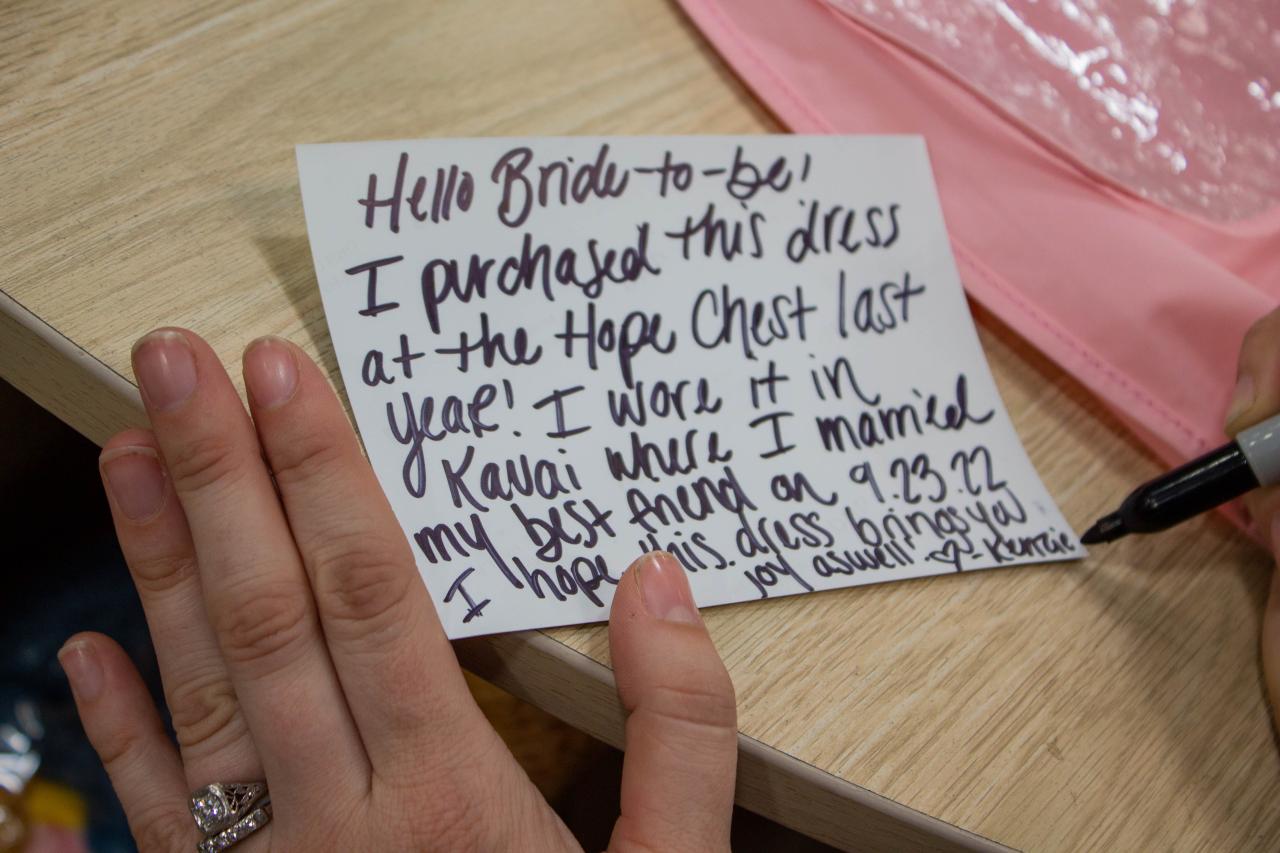 Hello Bride-to-be!
I purchased this dress
at the Hope Chest last
year! I wore it in
Kauai where I married
my best friend on 9.23.22
I hope this dress brings you
joy aswell! ♡-Kerrcie